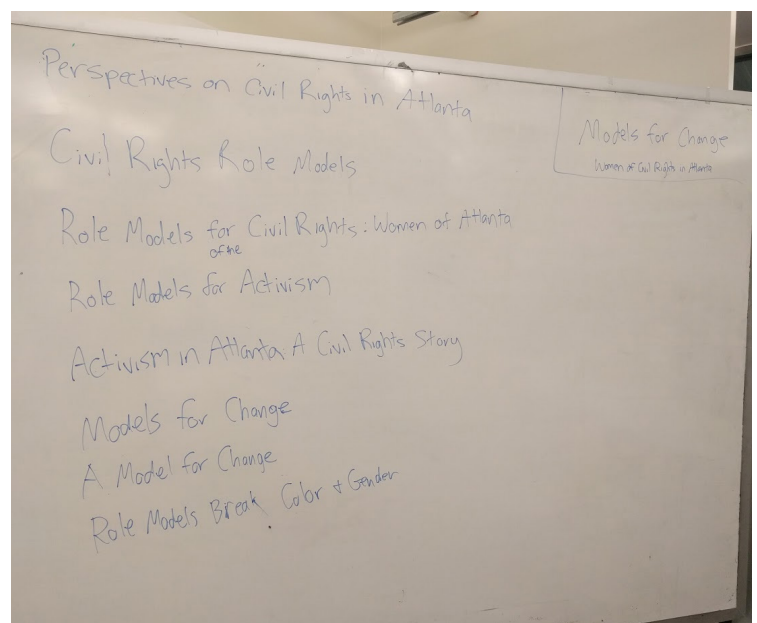 Perspectives on Civil Rights in Atlanta
Civil Rights Role Models
Role Models for Civil Rights: Women of Atlanta
of the
Role Models for Activism
Activism in Atlanta: A Civil Rights Story
Models for Change
A Model for Change
Role Models Break Color + Gender
Models for Change
Women of Civil Rights in Atlanta